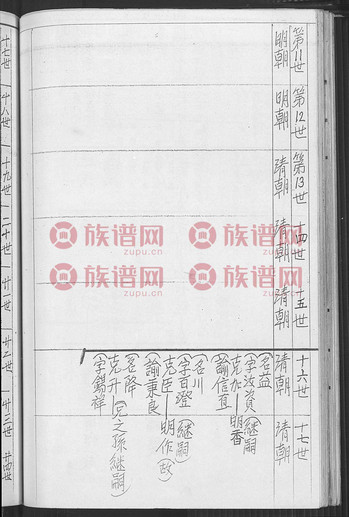 第11世
明朝
第12世
明朝
第13世
清朝
十四世
清朝
十五世
清朝
十六世
清朝
十七世
清朝
(名益
字汝資(継嗣
克九—明香
諭信直)
(名川
字百澄(継嗣
克臣—明作(政)
(諭秉良
(名降
克升—(兄之孫継嗣)
(字錫祥
十七世
十八世
十九世
二十世
廿一世
廿二世
廿三世
廿四世
族谱网
zupu.cn
族谱网
zupu.cn
族谱网
zupu.cn
族谱网
zupu.cn